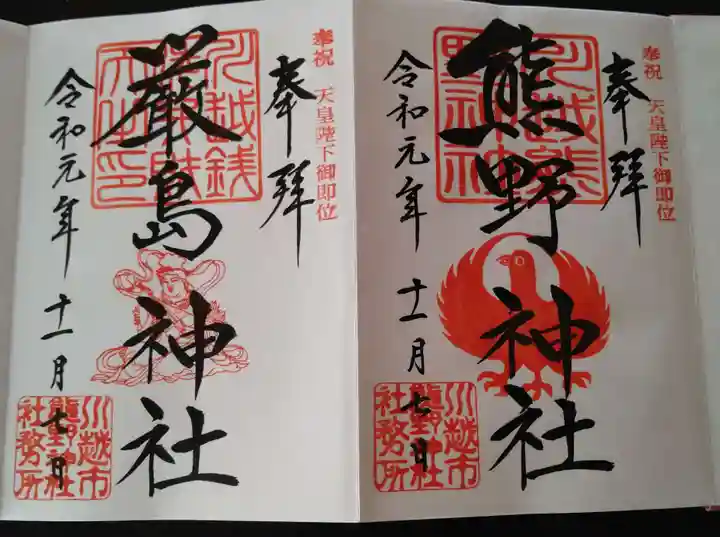 奉祝 天皇陛下御即位
奉拝
川越熊
野神社
熊野神社
令和元年 十一月 七日
川越市
熊野神社
社務所
奉祝 天皇陛下御即位
奉拝
川越銭
厳島神社
令和元年 十一月 七日
川越市
熊野神社
社務所